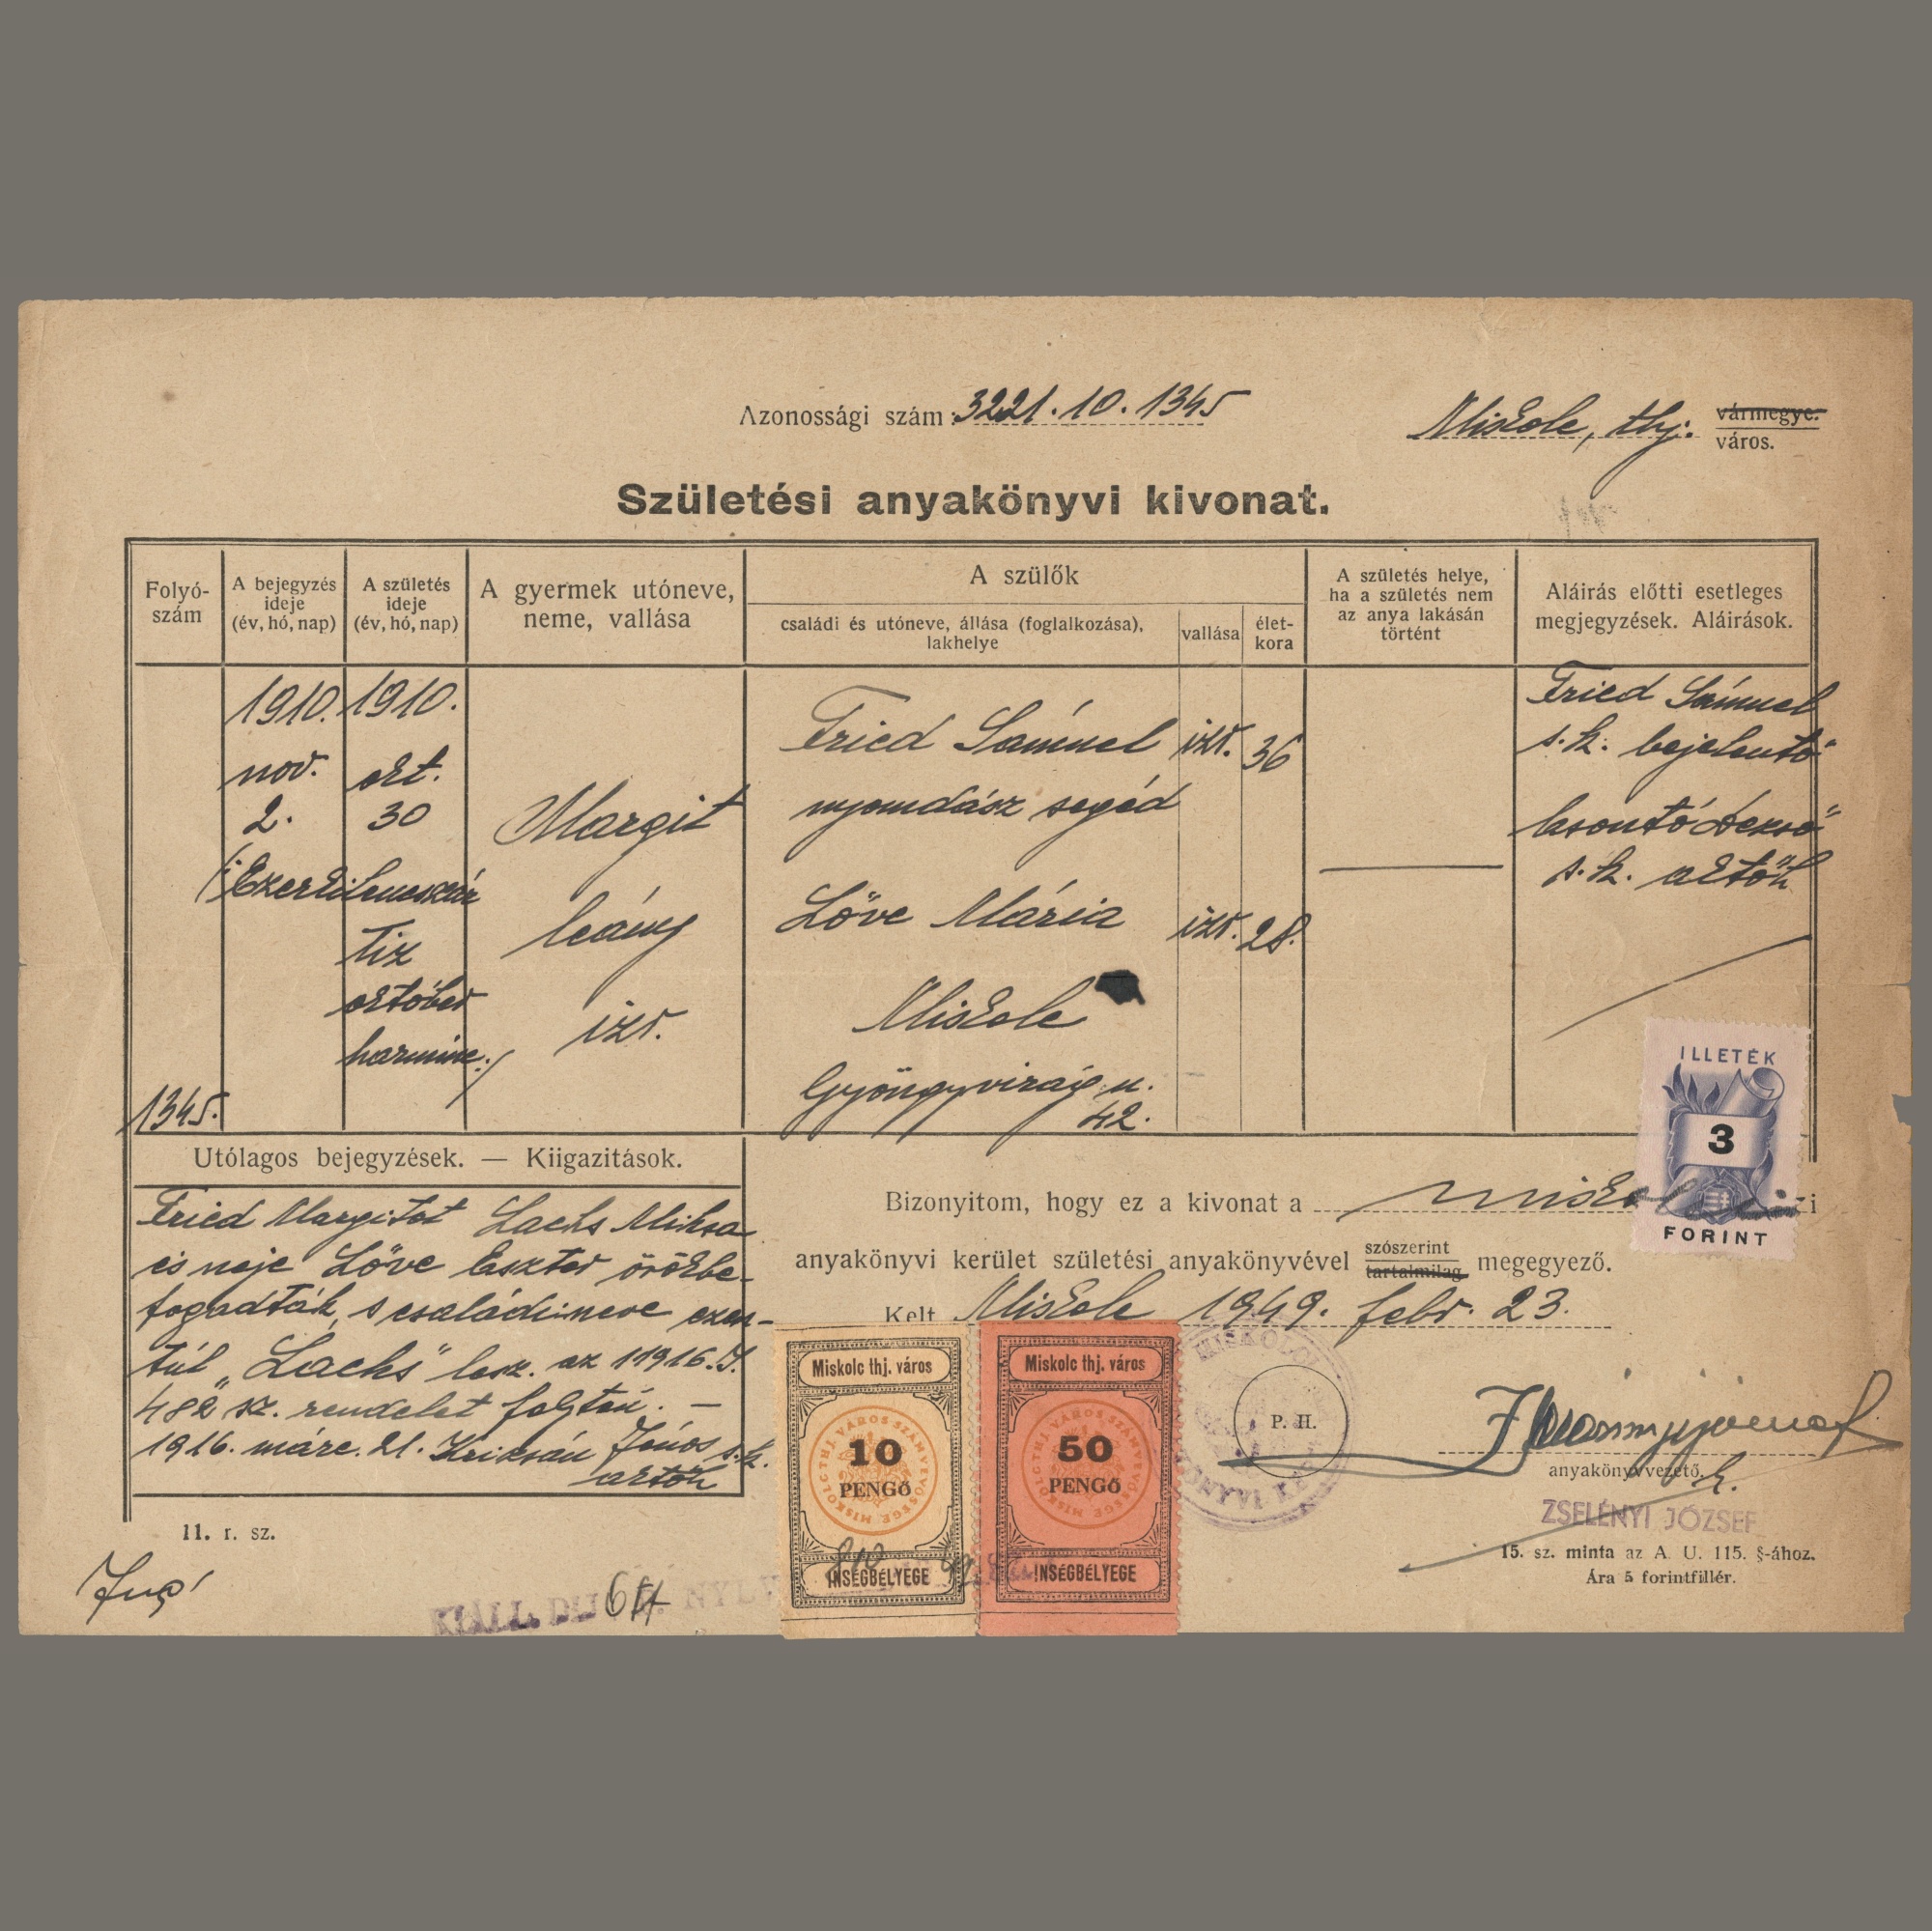 Azonossági szám: 3221.10.1345
Miskolc, thj. vármegye.
város.
Születési anyakönyvi kivonat.
Folyó-
szám
A bejegyzés
ideje
(év, hó, nap)
A születés
ideje
(év, hó, nap)
A gyermek utóneve,
neme, vallása
A szülők
családi és utóneve, állása (foglalkozása),
lakhelye
vallása
élet-
kora
A születés helye,
ha a születés nem
az anya lakásán
történt
Aláírás előtti esetleges
megjegyzések. Aláírások.
1345.
1910.
nov.
2.
1910.
okt.
30
(:Ezerkilencszáz
tiz
október
harminc:)
Margit
leány
izr.
Fried Sámuel izr. 36
nyomdász segéd
Löve Mária izr. 28.
Miskolc
Gyöngyvirág u.
42.
Fried Sámuel
s. k. bejelentő
Dezső
s. k. aktőh
Utólagos bejegyzések. — Kiigazitások.
Fried Margitot Lachs Miksa
és neje Löve Eszter örökbe-
fogadták, s családi neve ezen-
túl „Lachs" lesz. az 1916. I.
482 sz. rendelet folytán. —
1916. márc. 21. János s.k.
aktőh
Bizonyitom, hogy ez a kivonat a miskolci
anyakönyvi kerület születési anyakönyvével szószerint megegyező.
tartalmilag
Kelt Miskolc 1949. febr. 23.
P. H.
anyakönyvvezető.
h.
ZSELÉNYI JÓZSEF
15. sz. minta az A. U. 115. §-ához.
Ára 5 forintfillér.
11. r. sz.
6 ft
KIÁLL. DIJ
ILLETÉK
3
FORINT
Miskolc thj. város
10
PENGŐ
INSÉGBÉLYEGE
Miskolc thj. város
50
PENGŐ
INSÉGBÉLYEGE